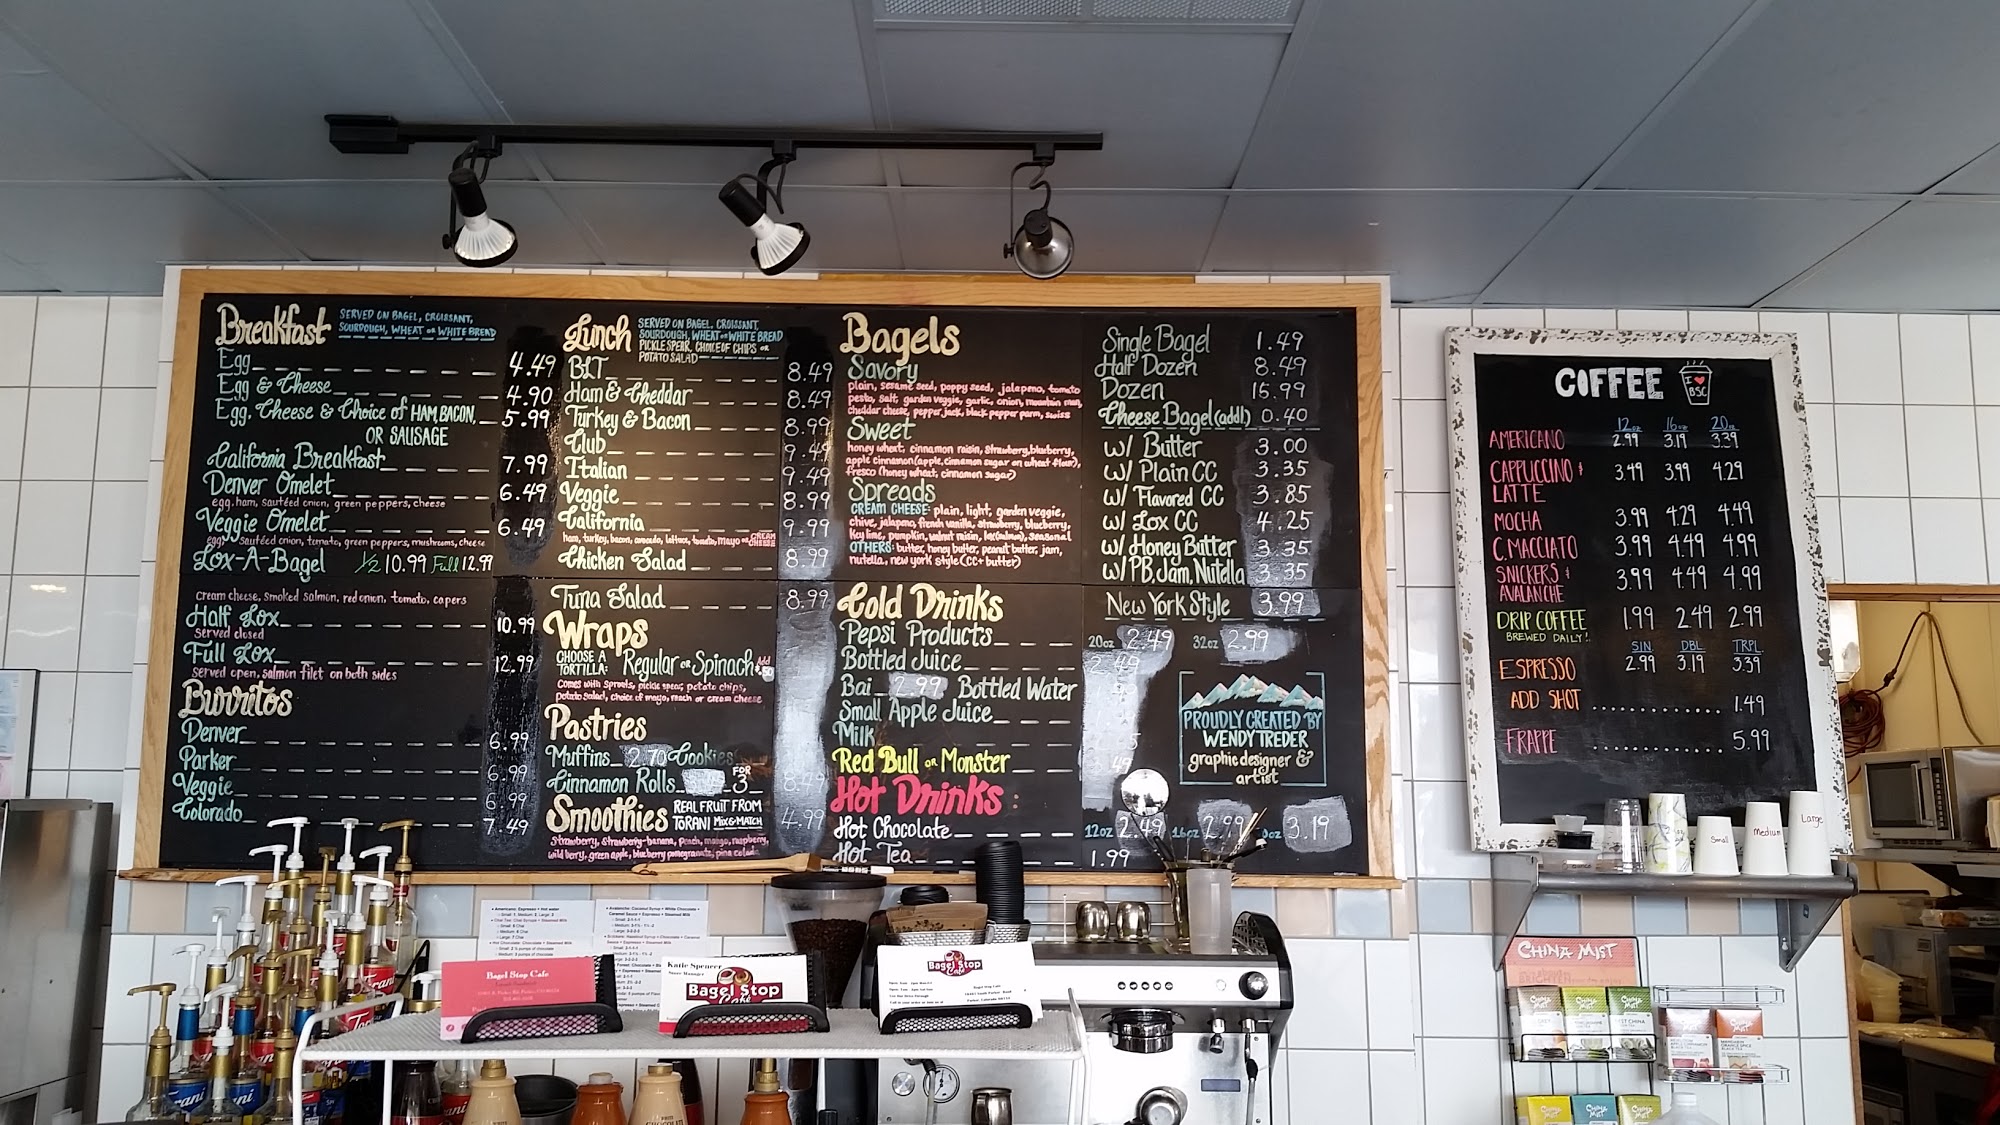 Breakfast SERVED ON BAGEL, CROISSANT,
SOURDOUGH, WHEAT OR WHITE BREAD
Egg 4.49
Egg & Cheese 4.90
Egg, Cheese & Choice of HAM, BACON, 5.99
OR SAUSAGE
California Breakfast 7.99
Denver Omelet 6.49
egg, ham, sautéed onion, green peppers, cheese
Veggie Omelet 6.49
egg, sautéed onion, tomato, green peppers, mushrooms, cheese
Lox-A-Bagel 1/2 10.99 Full 12.99
cream cheese, smoked salmon, red onion, tomato, capers
Half Lox 10.99
served closed
Full Lox 12.99
served open, salmon filet on both sides
Burritos
Denver 6.99
Parker 6.99
Veggie 6.99
Colorado 7.49
Lunch SERVED ON BAGEL, CROISSANT,
SOURDOUGH, WHEAT OR WHITE BREAD
PICKLE SPEAR, CHOICE OF CHIPS OR
POTATO SALAD
BLT 8.49
Ham & Cheddar 8.49
Turkey & Bacon 8.99
Club 9.49
Italian 9.49
Veggie 8.99
California 9.99
ham, turkey, bacon, avocado, lettuce, tomato, mayo or CREAM CHEESE
Chicken Salad 8.99
Tuna Salad 8.99
Wraps
CHOOSE A
TORTILLA: Regular or Spinach Add
Comes with sprouts, pickle spear, potato chips,
potato salad, choice of mayo, ranch or cream cheese
Pastries
Muffins 2.70 Cookies
Cinnamon Rolls FOR 3
Smoothies REAL FRUIT FROM
TORANI MIX & MATCH 4.99
Strawberry, strawberry-banana, peach, mango, raspberry,
wild berry, green apple, blueberry pomegranate, pina colada
Bagels
Savory
plain, sesame seed, poppy seed, jalapeno, tomato
pesto, salt, garden veggie, garlic, onion, mountain man,
cheddar cheese, pepper jack, black pepper parm, swiss
Sweet
honey wheat, cinnamon raisin, strawberry, blueberry,
apple cinnamon (apple, cinnamon sugar on wheat flour),
fresco (honey wheat, cinnamon sugar)
Spreads
CREAM CHEESE: plain, light, garden veggie,
chive, jalapeno, french vanilla, strawberry, blueberry,
key lime, pumpkin, walnut raisin, lox (salmon), seasonal
OTHERS: butter, honey butter, peanut butter, jam,
nutella, new york style (CC + butter)
Single Bagel 1.49
Half Dozen 8.49
Dozen 15.99
Cheese Bagel (addl.) 0.40
w/ Butter 3.00
w/ Plain CC 3.35
w/ Flavored CC 3.85
w/ Lox CC 4.25
w/ Honey Butter 3.35
w/ PB, Jam, Nutella 3.35
New York Style 3.99
Cold Drinks
Pepsi Products 20oz 2.49 32oz 2.99
Bottled Juice 2.49
Bai 2.99 Bottled Water
Small Apple Juice
Milk
Red Bull or Monster
Hot Drinks:
Hot Chocolate 12oz 2.49 16oz 2.99 3.19
Hot Tea 1.99
PROUDLY CREATED BY
WENDY TREDER
graphic designer &
artist
COFFEE I ♥ BSC
12oz 16oz 20oz
AMERICANO 2.99 3.19 3.39
CAPPUCCINO & 3.49 3.99 4.29
LATTE
MOCHA 3.99 4.29 4.49
C. MACCIATO 3.99 4.49 4.99
SNICKERS & 3.99 4.49 4.99
AVALANCHE
DRIP COFFEE 1.99 2.49 2.99
BREWED DAILY!
SIN DBL TRPL
ESPRESSO 2.99 3.19 3.39
ADD SHOT 1.49
FRAPPE 5.99
Small
Medium
Large
CHINA MIST
Bagel Stop Cafe
Katie Spencer
Store Manager
Bagel Stop
Café
Bagel Stop
Café
Bagel Stop Cafe